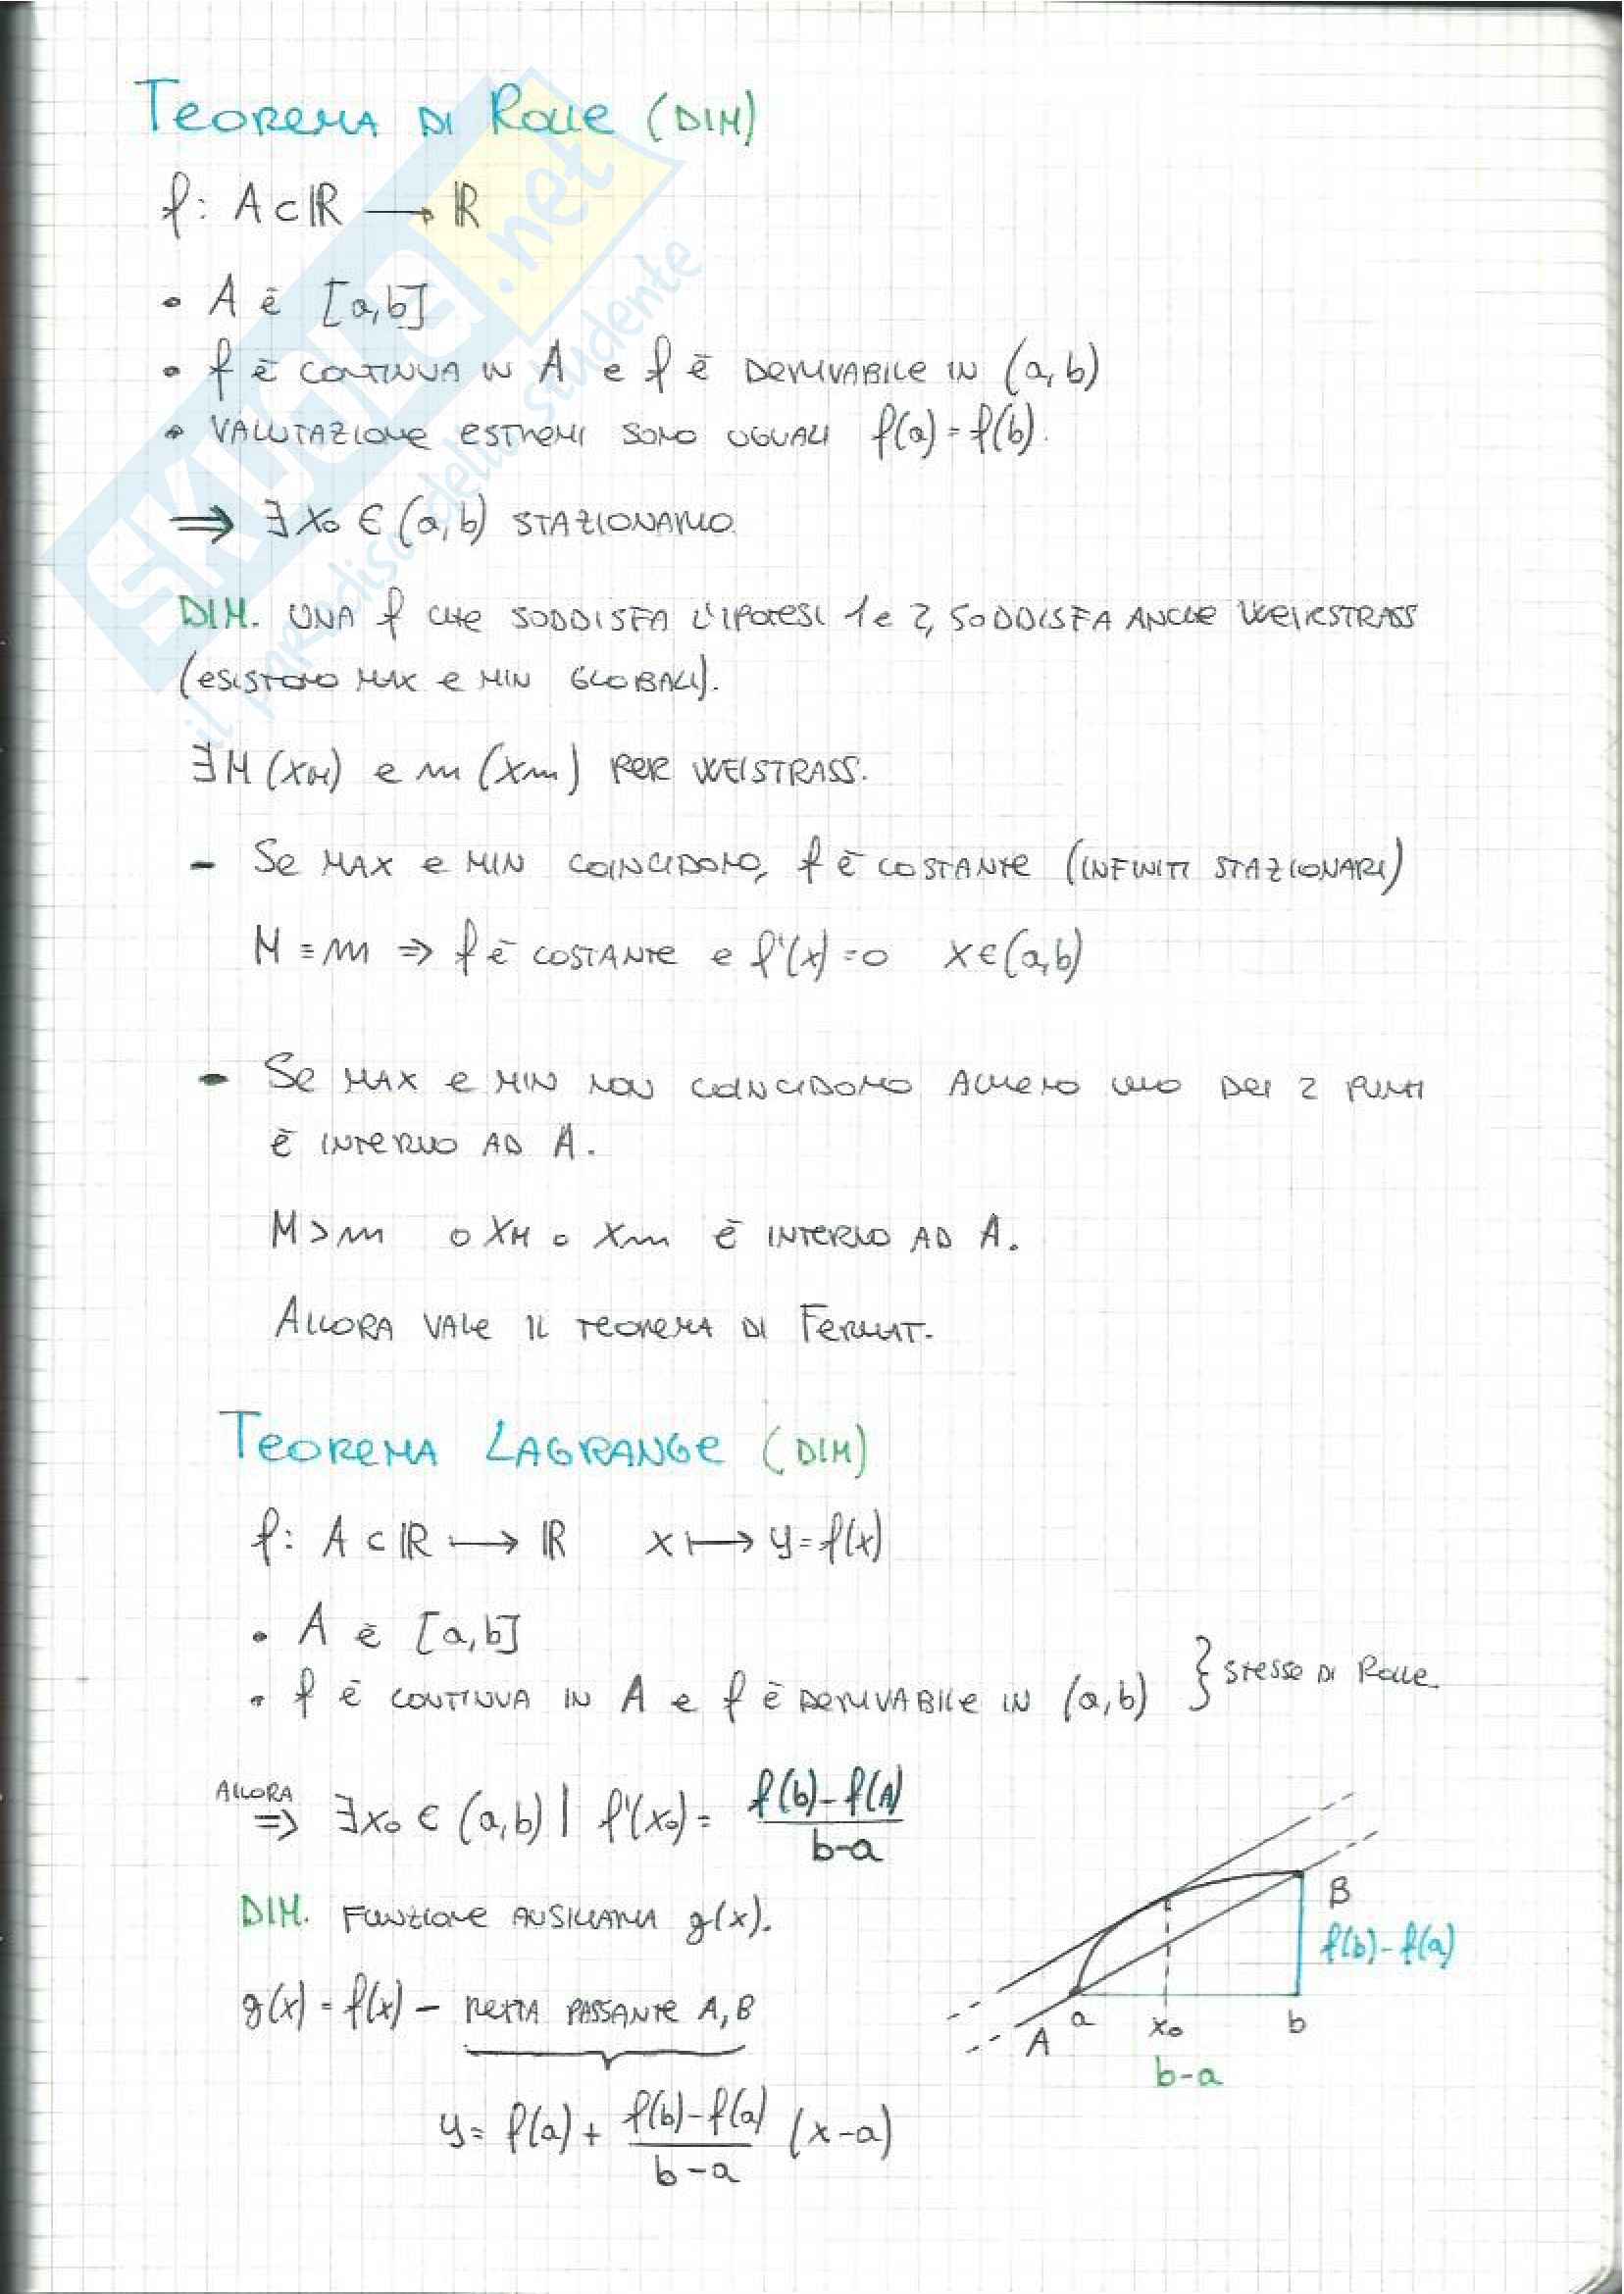 TEOREMA DI ROLLE (DIM)
f: A ⊂ ℝ → ℝ
• A è [a,b]
• f è CONTINUA IN A e f è DERIVABILE IN (a,b)
• VALUTAZIONE ESTREMI SONO UGUALI f(a) = f(b).
⇒ ∃ x₀ ∈ (a,b) STAZIONARIO.
DIM. UNA f CHE SODDISFA L'IPOTESI 1 e 2, SODDISFA ANCHE WEIRSTRASS
(ESISTONO MAX e MIN GLOBALI).
∃ M (x_M) e m (x_m) PER WEISTRASS.
- Se MAX e MIN COINCIDONO, f è COSTANTE (INFINITI STAZIONARI)
M ≡ m ⇒ f è COSTANTE e f'(x) = 0 x ∈ (a,b)
- Se MAX e MIN NON COINCIDONO ALMENO UNO DEI 2 PUNTI
È INTERNO AD A.
M > m o x_M o x_m È INTERNO AD A.
ALLORA VALE IL TEOREMA DI FERMAT.
TEOREMA LAGRANGE (DIM)
f: A ⊂ ℝ ⟼ ℝ x ⟼ y = f(x)
• A è [a,b]
• f è CONTINUA IN A e f è DERIVABILE IN (a,b) } STESSE DI ROLLE.
ALLORA
⇒ ∃ x₀ ∈ (a,b) | f'(x₀) = (f(b) - f(A)) / (b-a)
DIM. FUNZIONE AUSILIARIA g(x).
g(x) = f(x) - RETTA PASSANTE A, B
y = f(a) + (f(b) - f(a)) / (b-a) (x-a)
B
f(b) - f(a)
A a x₀ b
b-a
SKUOLA.net
il paradiso dello studente